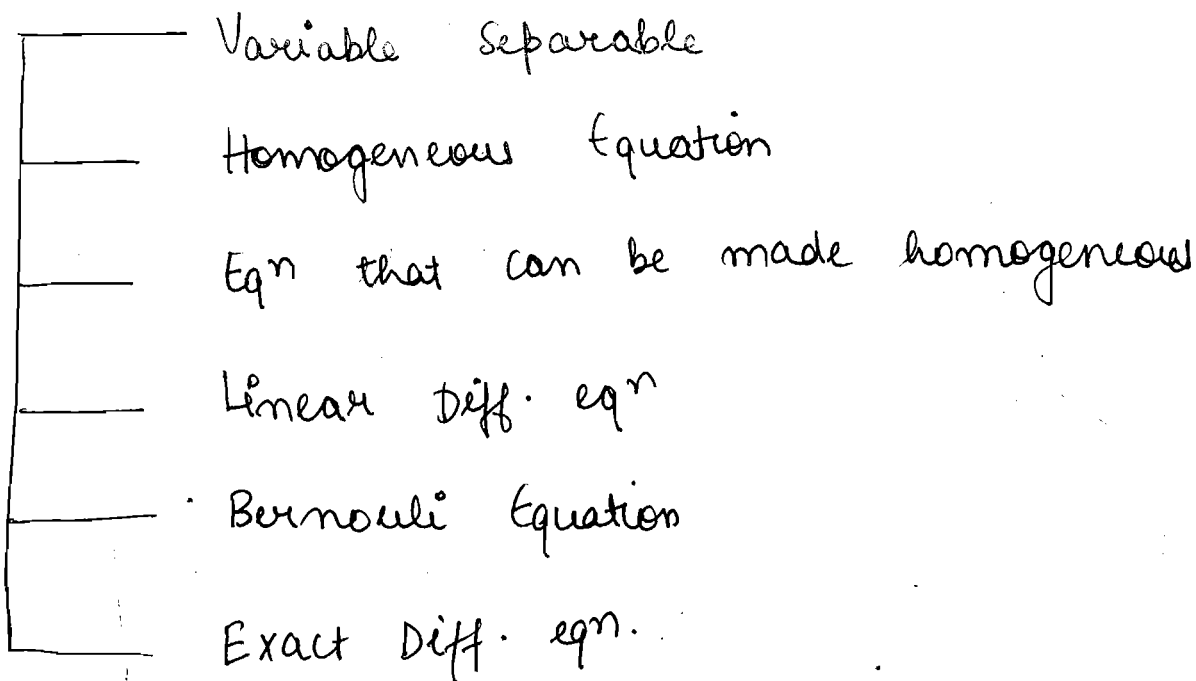 Variable Separable
Homogeneous Equation
Eqn that can be made homogeneous
Linear Diff. eqn
Bernouli Equation
Exact Diff. eqn.